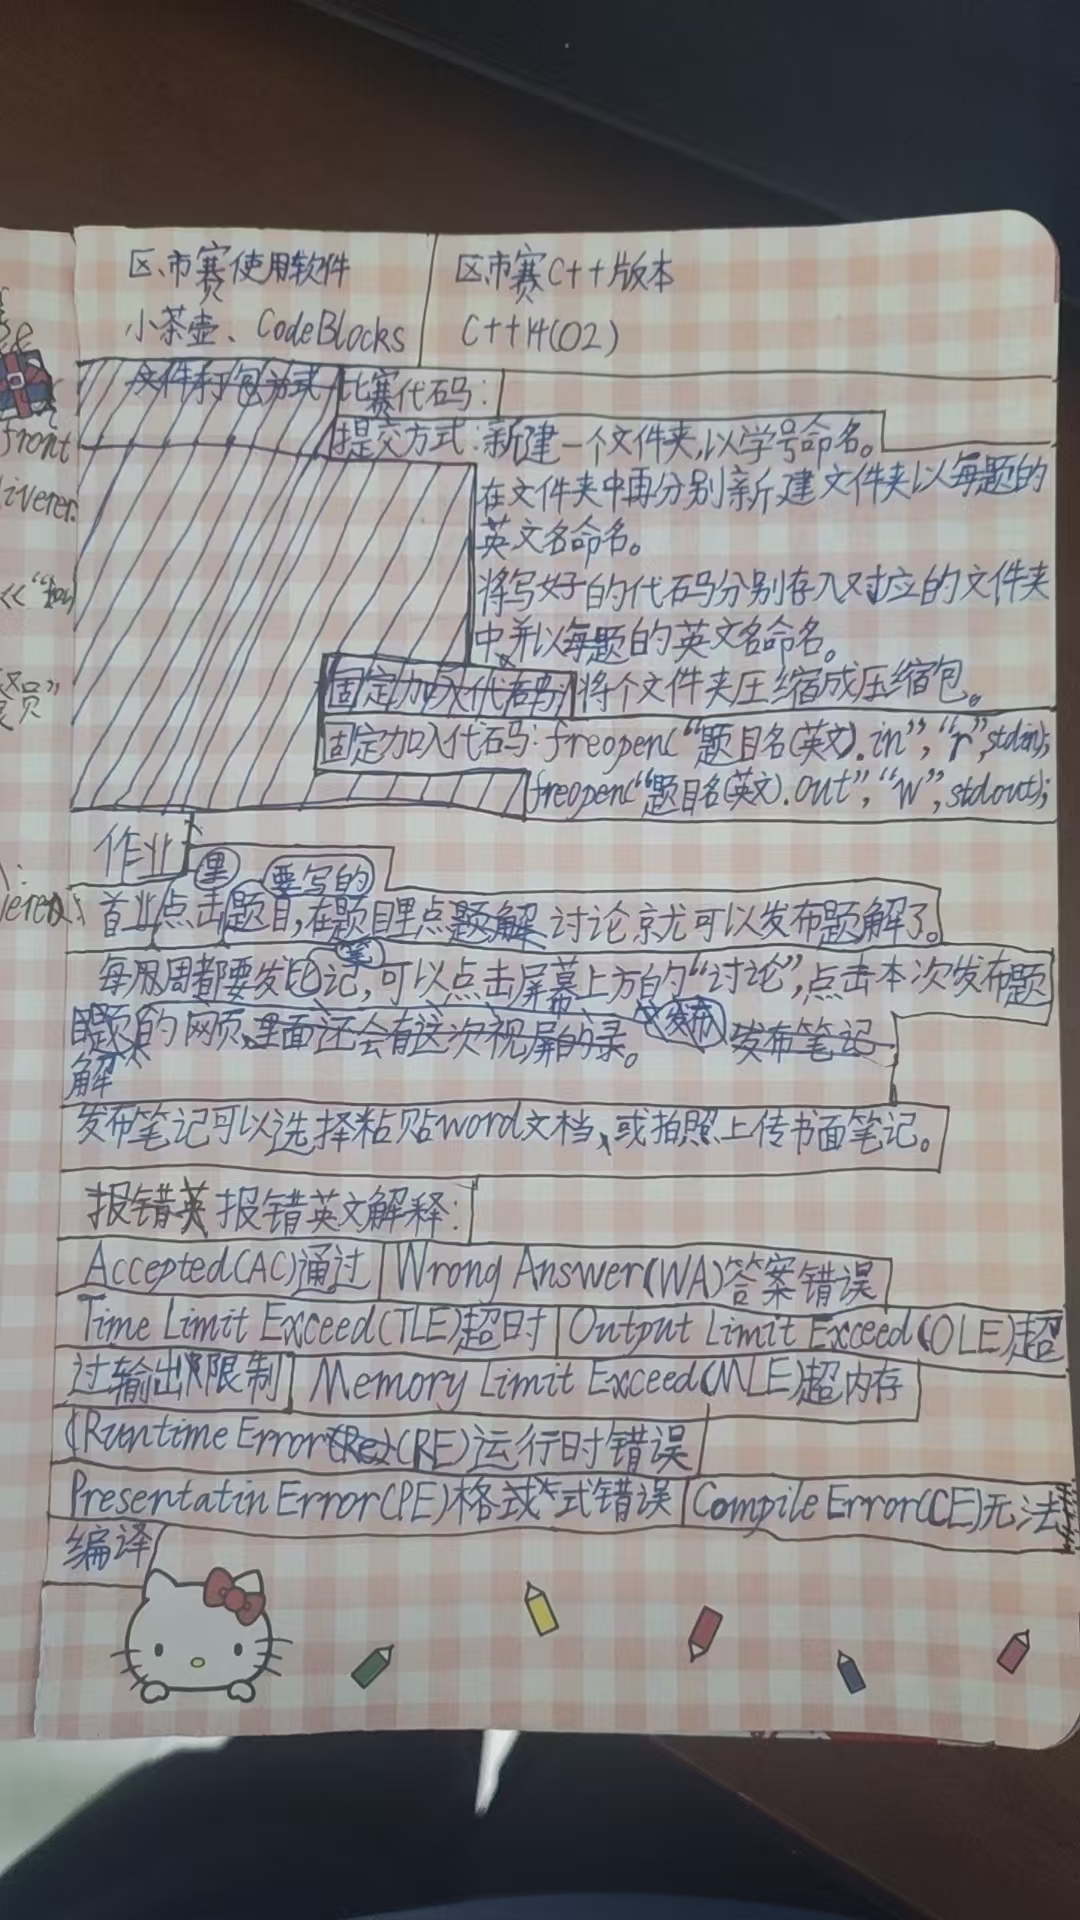 区、市赛使用软件
区市赛C++版本
小茶壶、CodeBlocks
C++14(O2)
文件打包方式
比赛代码:
提交方式:新建一个文件夹,以学号命名。
在文件夹中再分别新建文件夹以每题的
英文名命名。
将写好的代码分别存入对应的文件夹
中并以每题的英文名命名。
固定加入代码:
将个文件夹压缩成压缩包。
固定加入代码:freopen("题目名(英文).in","r",stdin);
freopen("题目名(英文).out","w",stdout);
作业
里 要写的
首业点击题目,在题目里点题解 讨论就可以发布题解了。
笔
每周都要发记,可以点击屏幕上方的“讨论”,点击本次发布题
题的网页,里面还会有这次视屏的录。
发布
发布笔记
解
发布笔记可以选择粘贴word文档、或拍照上传书面笔记。
报错英 报错英文解释:
Accepted(AC)通过
Wrong Answer(WA)答案错误
Time Limit Exceed(TLE)超时
Output Limit Exceed(OLE)超
过输出限制
Memory Limit Exceed(MLE)超内存
(Runtime Error(Re)(RE)运行时错误
Presentatin Error(PE)格式式错误
Compile Error(CE)无法
编译
front
liverer.
员”